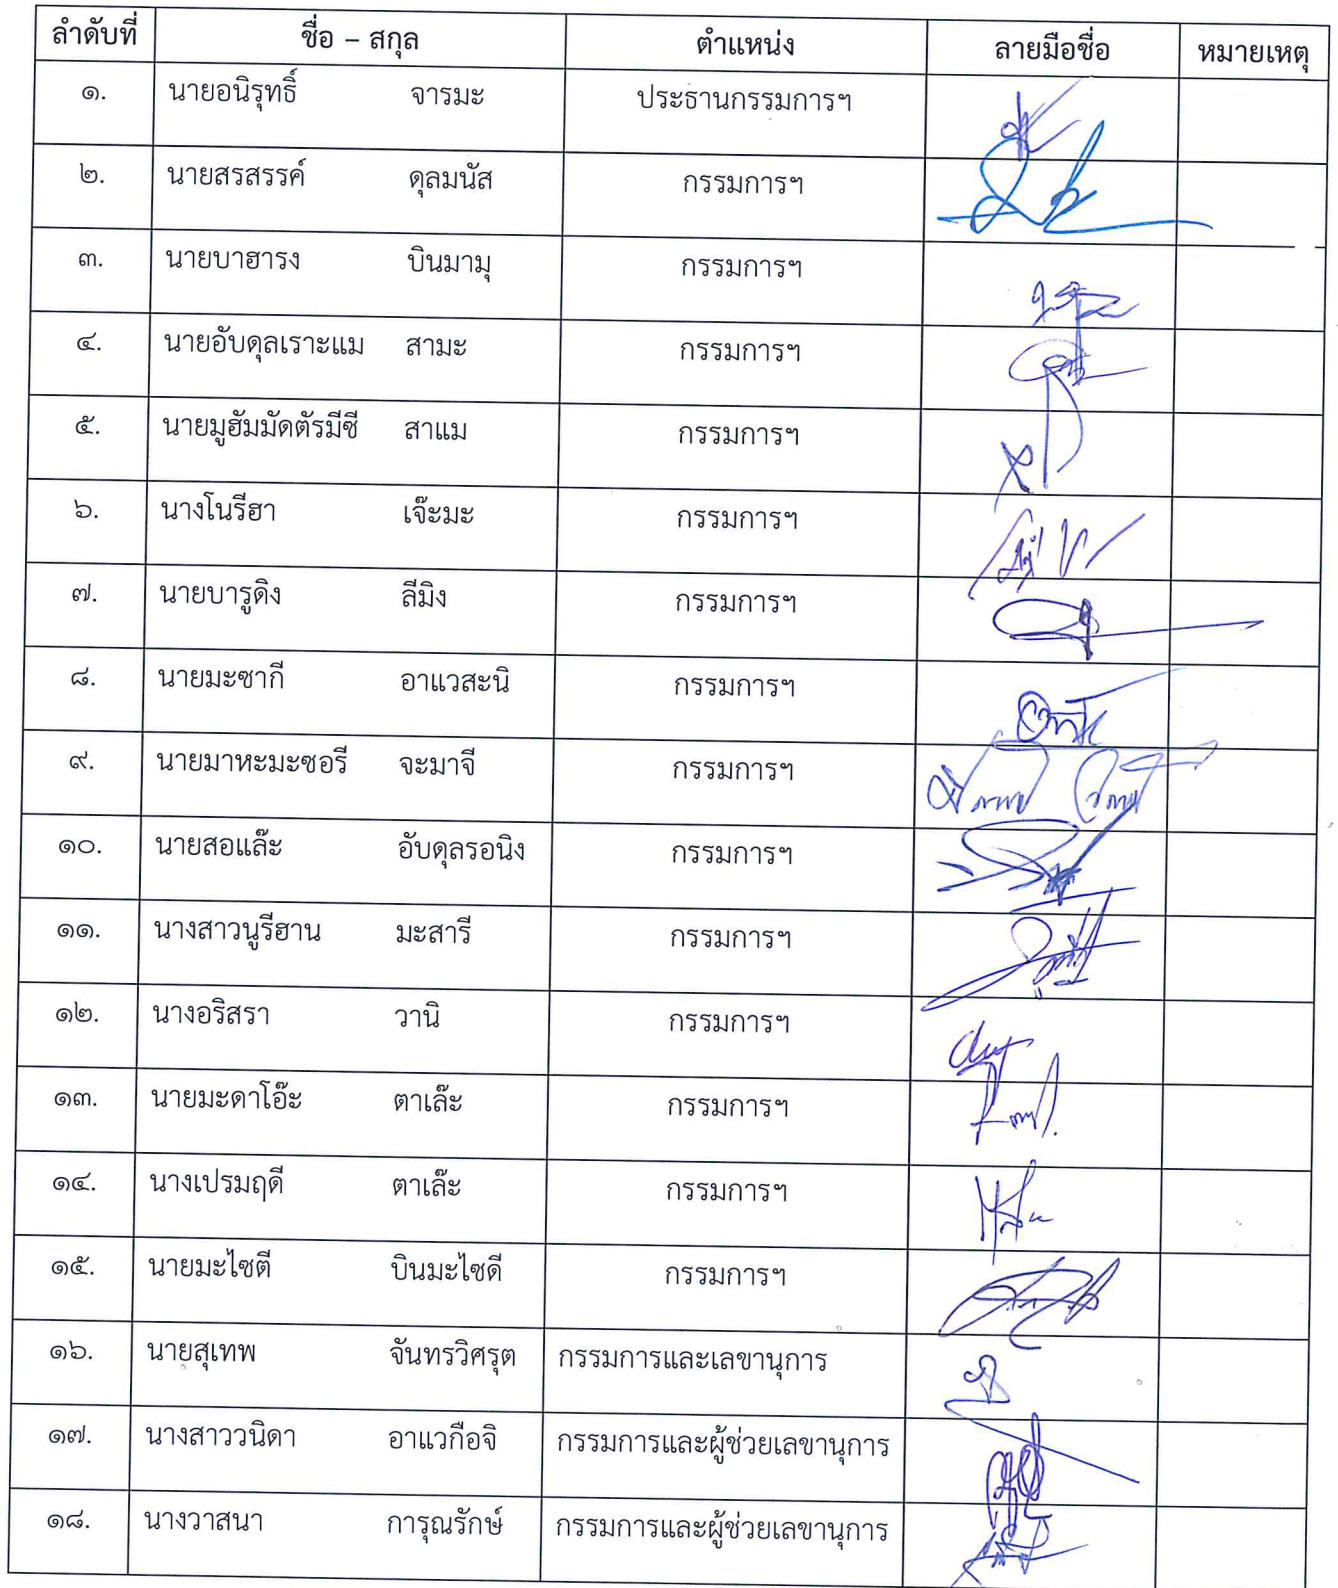 ลำดับที่ ชื่อ – สกุล ตำแหน่ง ลายมือชื่อ หมายเหตุ
๑. นายอนิรุทธิ์ จารมะ ประธานกรรมการฯ
๒. นายสรสรรค์ ดุลมนัส กรรมการฯ
๓. นายบาฮารง บินมามุ กรรมการฯ
๔. นายอับดุลเราะแม สามะ กรรมการฯ
๕. นายมูฮัมมัดตัรมีซี สาแม กรรมการฯ
๖. นางโนรีฮา เจ๊ะมะ กรรมการฯ
๗. นายบารูดิง ลีมิง กรรมการฯ
๘. นายมะซากี อาแวสะนิ กรรมการฯ
๙. นายมาหะมะซอรี จะมาจี กรรมการฯ
๑๐. นายสอแล๊ะ อับดุลรอนิง กรรมการฯ
๑๑. นางสาวนูรีฮาน มะสารี กรรมการฯ
๑๒. นางอริสรา วานิ กรรมการฯ
๑๓. นายมะดาโอ๊ะ ตาเล๊ะ กรรมการฯ
๑๔. นางเปรมฤดี ตาเล๊ะ กรรมการฯ
๑๕. นายมะไซตี บินมะไซดี กรรมการฯ
๑๖. นายสุเทพ จันทรวิศรุต กรรมการและเลขานุการ
๑๗. นางสาววนิดา อาแวกือจิ กรรมการและผู้ช่วยเลขานุการ
๑๘. นางวาสนา การุณรักษ์ กรรมการและผู้ช่วยเลขานุการ